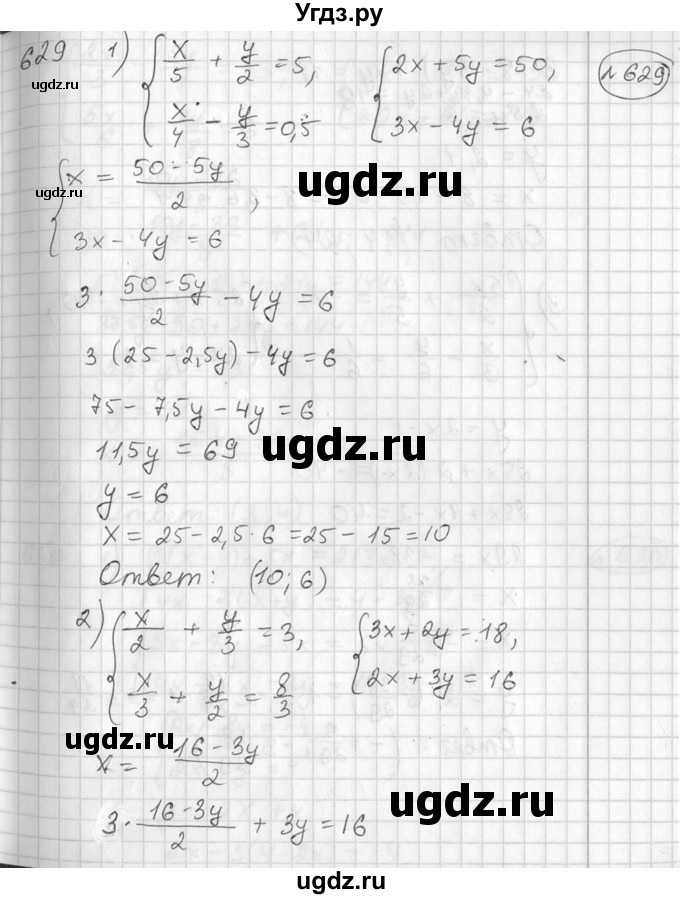 Угдз.ру
629 1) { x/5 + y/2 = 5, { 2x + 5y = 50, №629
x/4 - y/3 = 0,5 3x - 4y = 6
ugdz.ru
ugdz.ru
{ x = (50 - 5y)/2 ,
3x - 4y = 6
3 · (50 - 5y)/2 - 4y = 6
3 (25 - 2,5y) - 4y = 6
75 - 7,5y - 4y = 6
11,5y = 69
ugdz.ru
y = 6
x = 25 - 2,5 · 6 = 25 - 15 = 10
Ответ: (10; 6)
2) { x/2 + y/3 = 3, { 3x + 2y = 18,
x/3 + y/2 = 8/3 2x + 3y = 16
ugdz.ru
x = (16 - 3y)/2
ugdz.ru
3 · (16 - 3y)/2 + 3y = 16
ugdz.ru